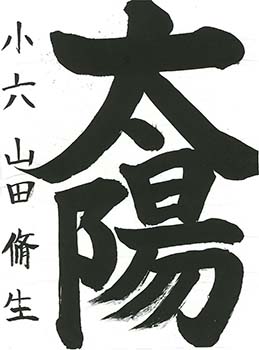 太陽
小六 山田脩生